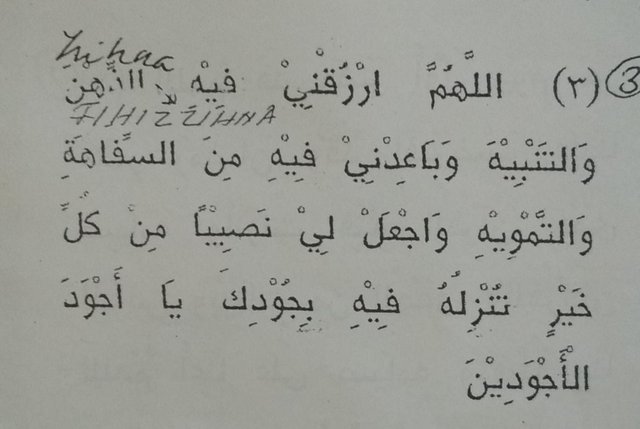 Zihnaa
(٣) اللَّهُمَّ ارْزُقْنِيْ فِيْهِ الذِّهْنَ ③
FIHIZZIHNA
وَالتَنْبِيْهَ وَبَاعِدْنِيْ فِيْهِ مِنَ السَّفَاهَةِ
وَالتَّمْوِيْهِ وَاجْعَلْ لِيْ نَصِيْبًا مِنْ كُلِّ
خَيْرٍ تُنْزِلُهُ فِيْهِ بِجُوْدِكَ يَا أَجْوَدَ
الْأَجْوَدِيْنَ